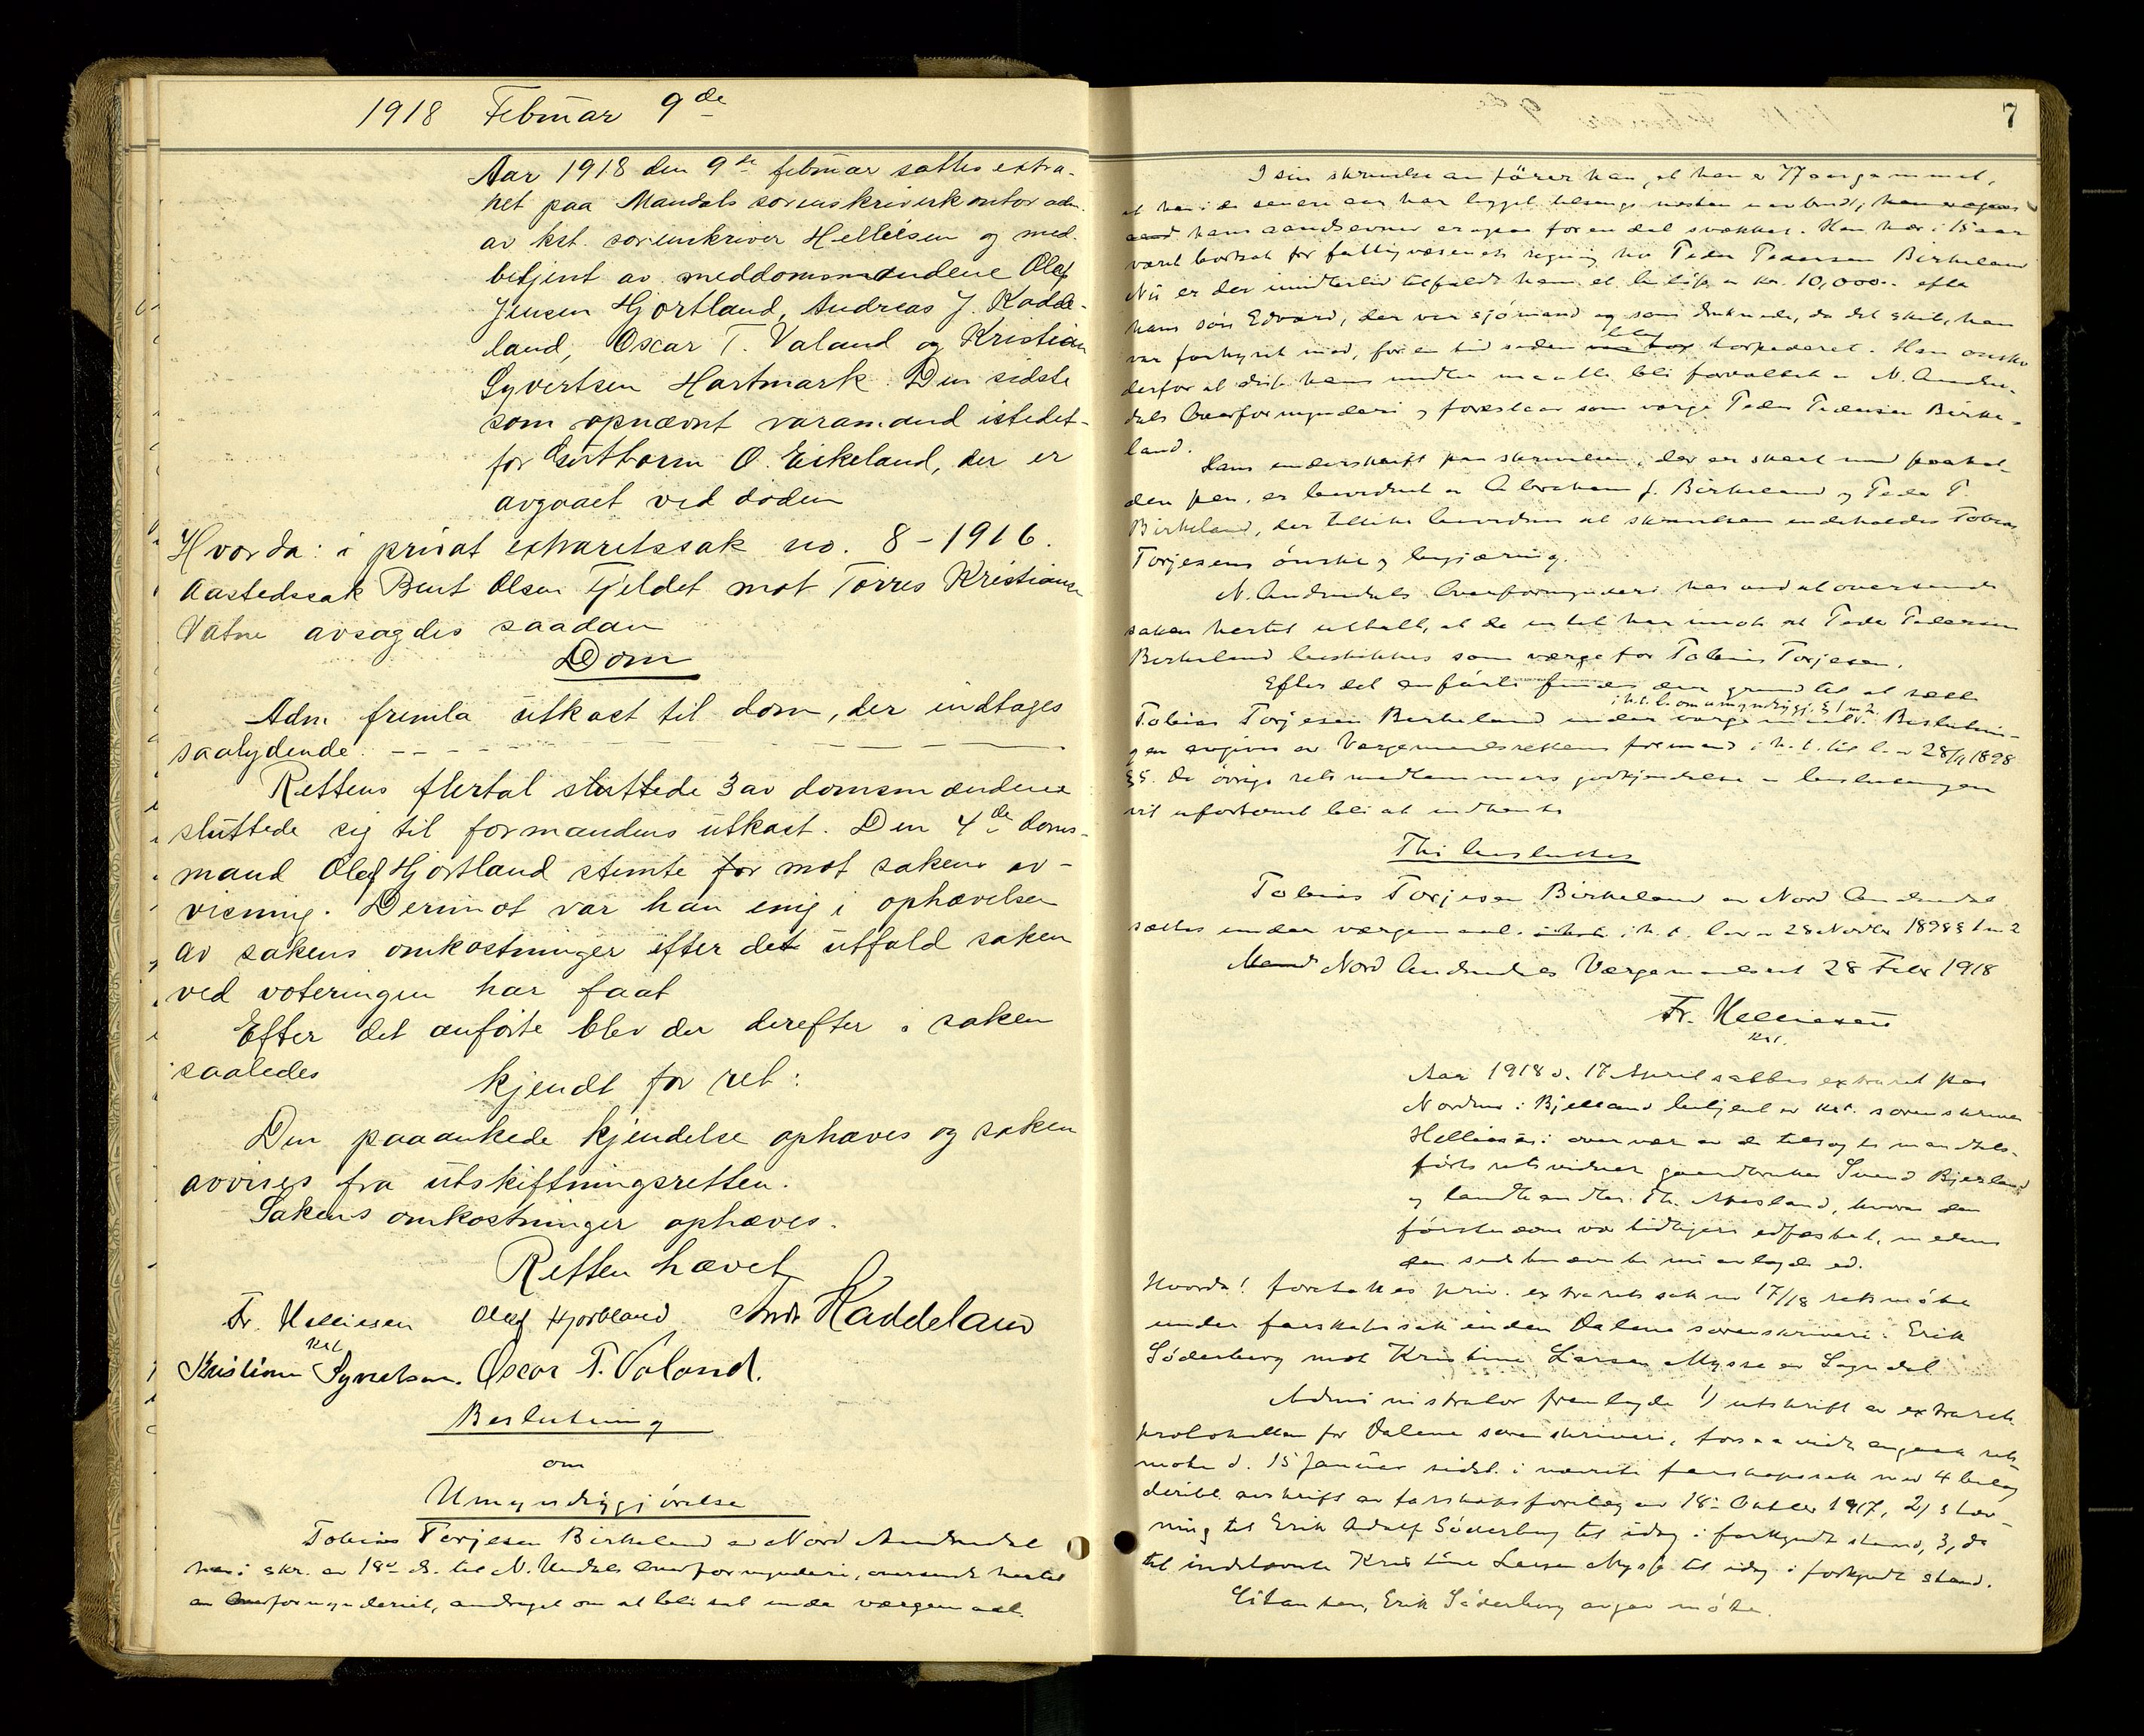 1918 Februar 9de
Aar 1918 den 9de februar sattes extra-
ret paa Mandals sorenskriverkontor adm.
av kst. sorenskriver Helliesen og med-
betjent av meddomsmændene Olaf
Jensen Hjortland, Andreas J. Kadde-
land, Oscar T. Valand og Kristian
Syvertsen Hartmark. Den sidste
som opnævnt varamand istedet-
for Gutthorm O. Eikeland, der er
avgaaet ved døden
Hvorda: i privat extraretssak no. 8-1916.
Aastedssak Bent Olsen Fjeldet mot Tørres Kristiansen
Vatne avsagdes saadan
Dom
Adm fremla utkast til dom, der indtages
saalydende: - - - - -
Rettens flertal sluttede 3 av domsmændene
sluttede sig til formandens utkast. Den 4de doms-
mand Olaf Hjortland stemte for mot sakens av-
visning. Derimot var han enig i ophævelsen
av sakens omkostninger efter det utfald saken
ved voteringen har faat
Efter det anførte blev der derefter i saken
saaledes kjendt for ret:
Den paaankede kjendelse ophæves og saken
avvises fra utskiftningsretten.
Sakens omkostninger ophæves.
Retten hævet
Fr. Helliesen Olaf Hjortland Andr Haddeland
kst
Kristian Syvertsen. Oscar T. Valand.
Beslutning
om
Umyndiggjørelse
Tobias Torjesen Birkeland av Nord Audnedal
har i skr. av 18de ds. til N. Undals Overformynderi, oversendt hertil
av Overformynderiet, andraget om at bli sat under værgemaal.
7
I sin skrivelse anfører han, at han er 77 aar gammel,
at han i de senere aar har ligget tilsengs næsten uavbrudt, han er ogsaa
hans aandsevner er ogsaa for en del svækket. Han har i 15 aar
været bortsat for fattigvæsenets regning hos Peder Pedersen Birkeland
Nu er der imidlertid tilfaldt ham et beløp av kr. 10,000.- efter
hans søn Edvard, der var sjømand og som druknede, da det skib, han
var forhyret med, for en tid siden blev torpederet. Han ønsker
derfor at disse hans midler maatte bli forvaltet av N. Audne-
dals Overformynderi og foreslaar som værge Peder Pedersen Birke-
land.
Hans underskrift paa skrivelsen, der er skeet med paahol-
den pen, er bevidnet av Abraham J. Birkeland og Peder P.
Birkeland, der tillike bevidner at skrivelsen indeholder Tobias
Torjesens ønske og begjæring.
N. Audnedals Overformynderi har ved at oversende
saken hertil uttalt, at de intet har imot at Peder Pedersen
Birkeland beskikkes som værge for Tobias Torjesen.
Efter det anførte findes der grund til at sætte
i h.t. l. om umyndiggj. § 1 m 2
Tobias Torjesen Birkeland under værgemaal. Beslutnin-
gen avgives av Værgemaalsrettens formand i h.t. til l. av 28/11 1898
§5. De øvrige retsmedlemmers godkjendelse av beslutningen
vil ufortøvet bli at indhente
Thi besluttes
Tobias Torjesen Birkeland av Nord Audnedal
sættes under værgemaal i h.t. lov av 28 Novbr 1898 § 1 m 2
Nord Audnedals Værgemaalsret 28 Febr 1918
Fr. Helliesen
kst.
Aar 1918 d. 17 April sattes extraret paa
Nordrum i Bjelland betjent av kst. sorenskriver
Helliesen i overvær av de tilsagte mandtals-
førte retsvidner gaardbruker Svend Bjerland
og landhandler Th. Apesland, hvorav den
førstnævnte var tidligere edfæstet, medens
den sidstnævnte nu avlagde ed.
Hvorda: foretokes priv. extraretssak no 17/18 retsmøte
under farskapssak inden Dalene sorenskriveri: Erik
Söderberg mot Kristine Larsen Mysse av Sogndal
Administrator fremlagde 1) utskrift av extrarets-
protokollen for Dalene sorenskriveri, forsaavidt angaar rets-
møte d. 15 Januar sidst. i nævnte farskapssak med 4 bilag
deribl. avskrift av farskapsforelæg av 18de Oktober 1917, 2) stæv-
ning til Erik Adolf Söderberg til idag i forkyndt stand, 3, do
til indstævnte Kristine Larsen Mysse til idag i forkyndt stand.
Citanten, Erik Söderberg avgav møte.